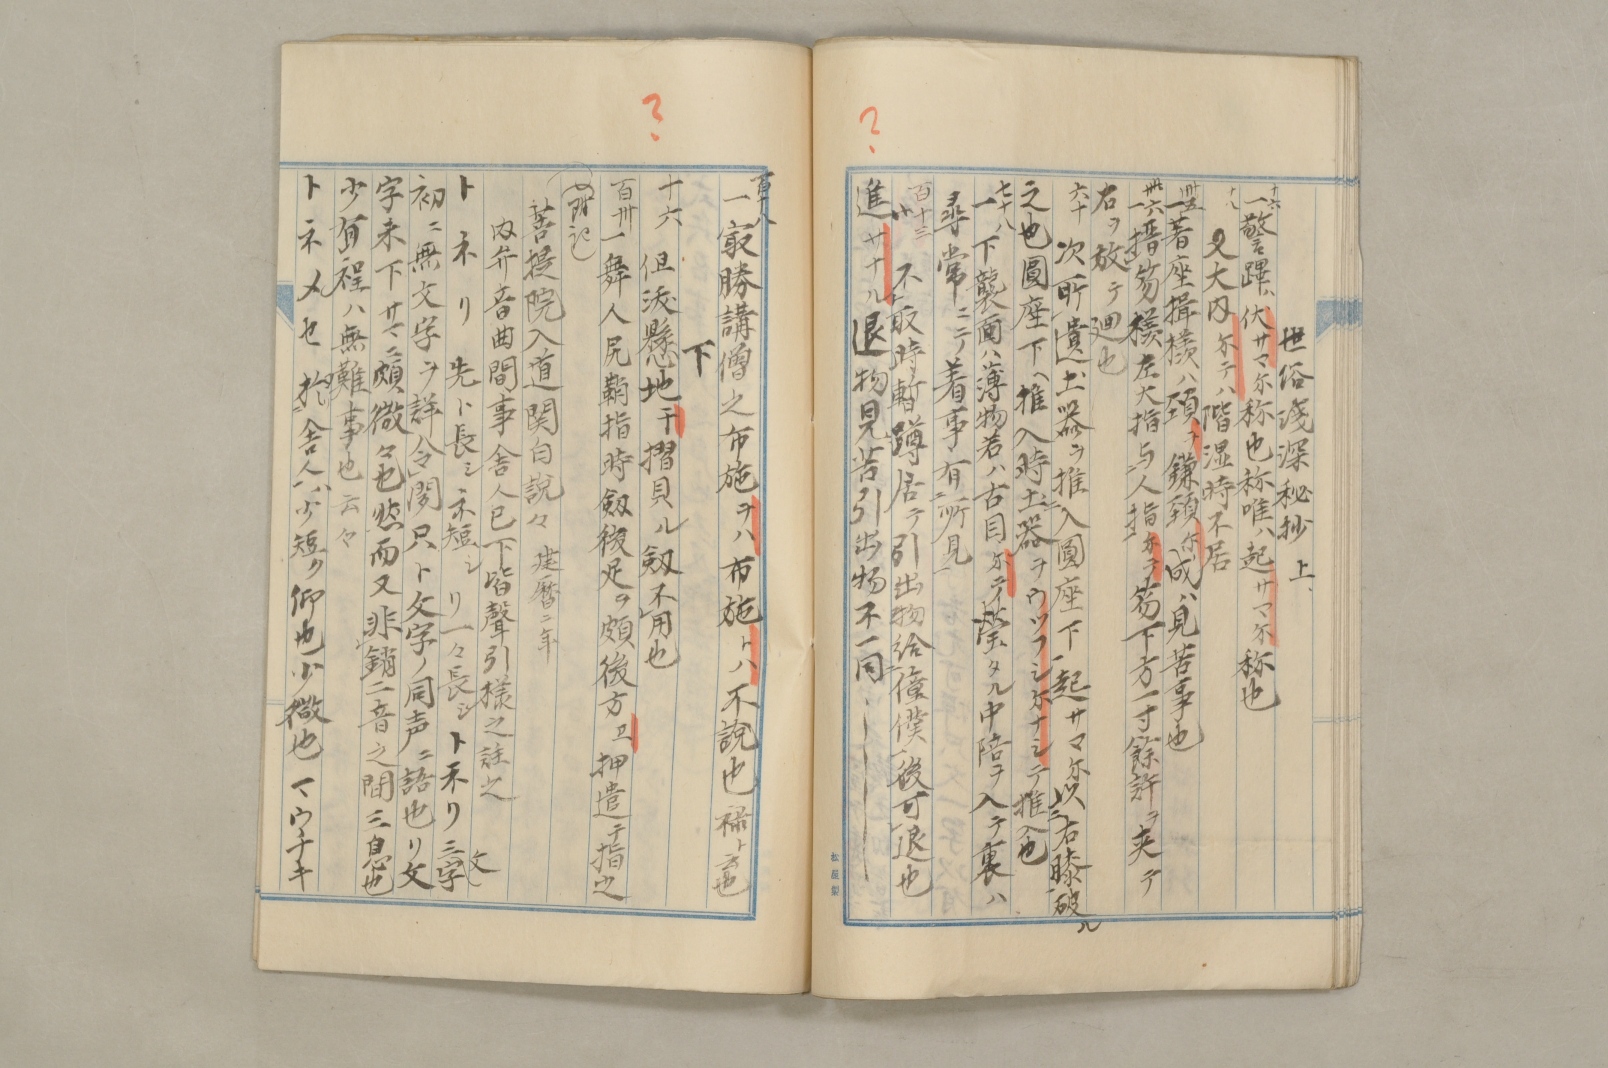 世俗浅深秘抄 上
十六 一警蹕ハ伏サマ尓称也称唯ハ起サマ尓称也
十八 又大内尓テハ階湿時不居
卅五 一著座揖揆ハ頚ヲ鎌頚尓成ハ見苦事也
卅六 一搢笏様左大指与人指尓テ笏下方一寸餘許ヲ夹テ
右ヲ放テ廻也
六十 次所遺土器ヲ推入圓座下起サマ尓以右膝破ル
之也圓座下ヘ推入時土器ヲウツフシ尓ナシテ推入也
七十八 一下襲面ハ薄物若ハ古目尓テ瑩タル中陪ヲ入テ裏ハ
尋常ニテ着事有所見
百十三 不取時暫蹲居テ引出物給僮僕後可退也
進サナル退物見苦引出物不一同
松屋製
百十八 一㝡勝講僧之布施ヲハ布施トハ不説也 禄ト云也
下
十六 但泼懸地干摺貝ル劔不用也
百卅 一舞人尻鞘指時劔後足ヲ頗後方ヱ押遣テ指也
附記
菩提院入道関白説々 建暦二年
内弁音曲間事舎人已下皆聲引様之註之
トネリ 先ト長シ ネ短シ リ一々長シ トネリ三字
初ニ無文字ヲ詳令聞只ト文字ノ同声ニ語也リ文
字未下サマニ頗微々也然而又非銷二音之間三息也
少有程ハ無難事也云々
トネメセ 於舎人ハ少短ク仰也少微也 マウチキ